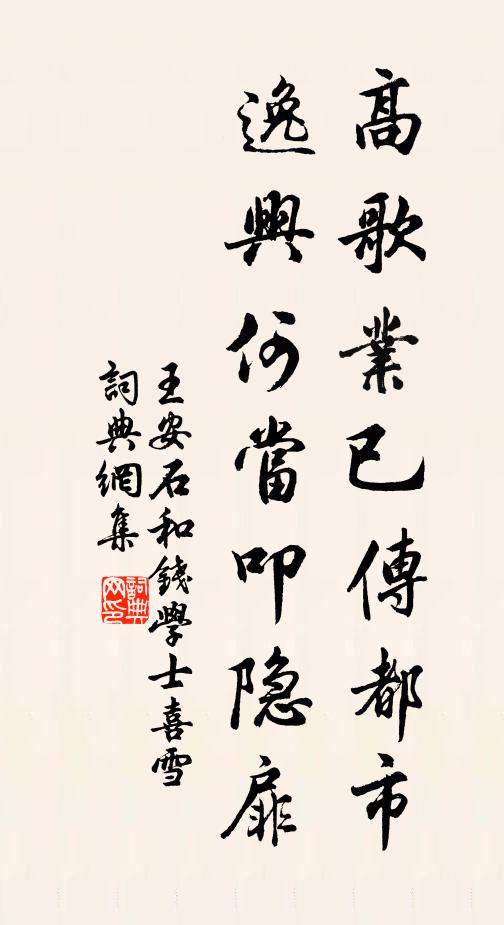 高歌業已傳都市
逸興何當叩隐扉
王安石和錢學士喜雪
詞典網集
詞典網印